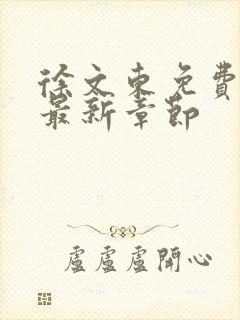 徐文東免費
最新章節
盧盧盧開心